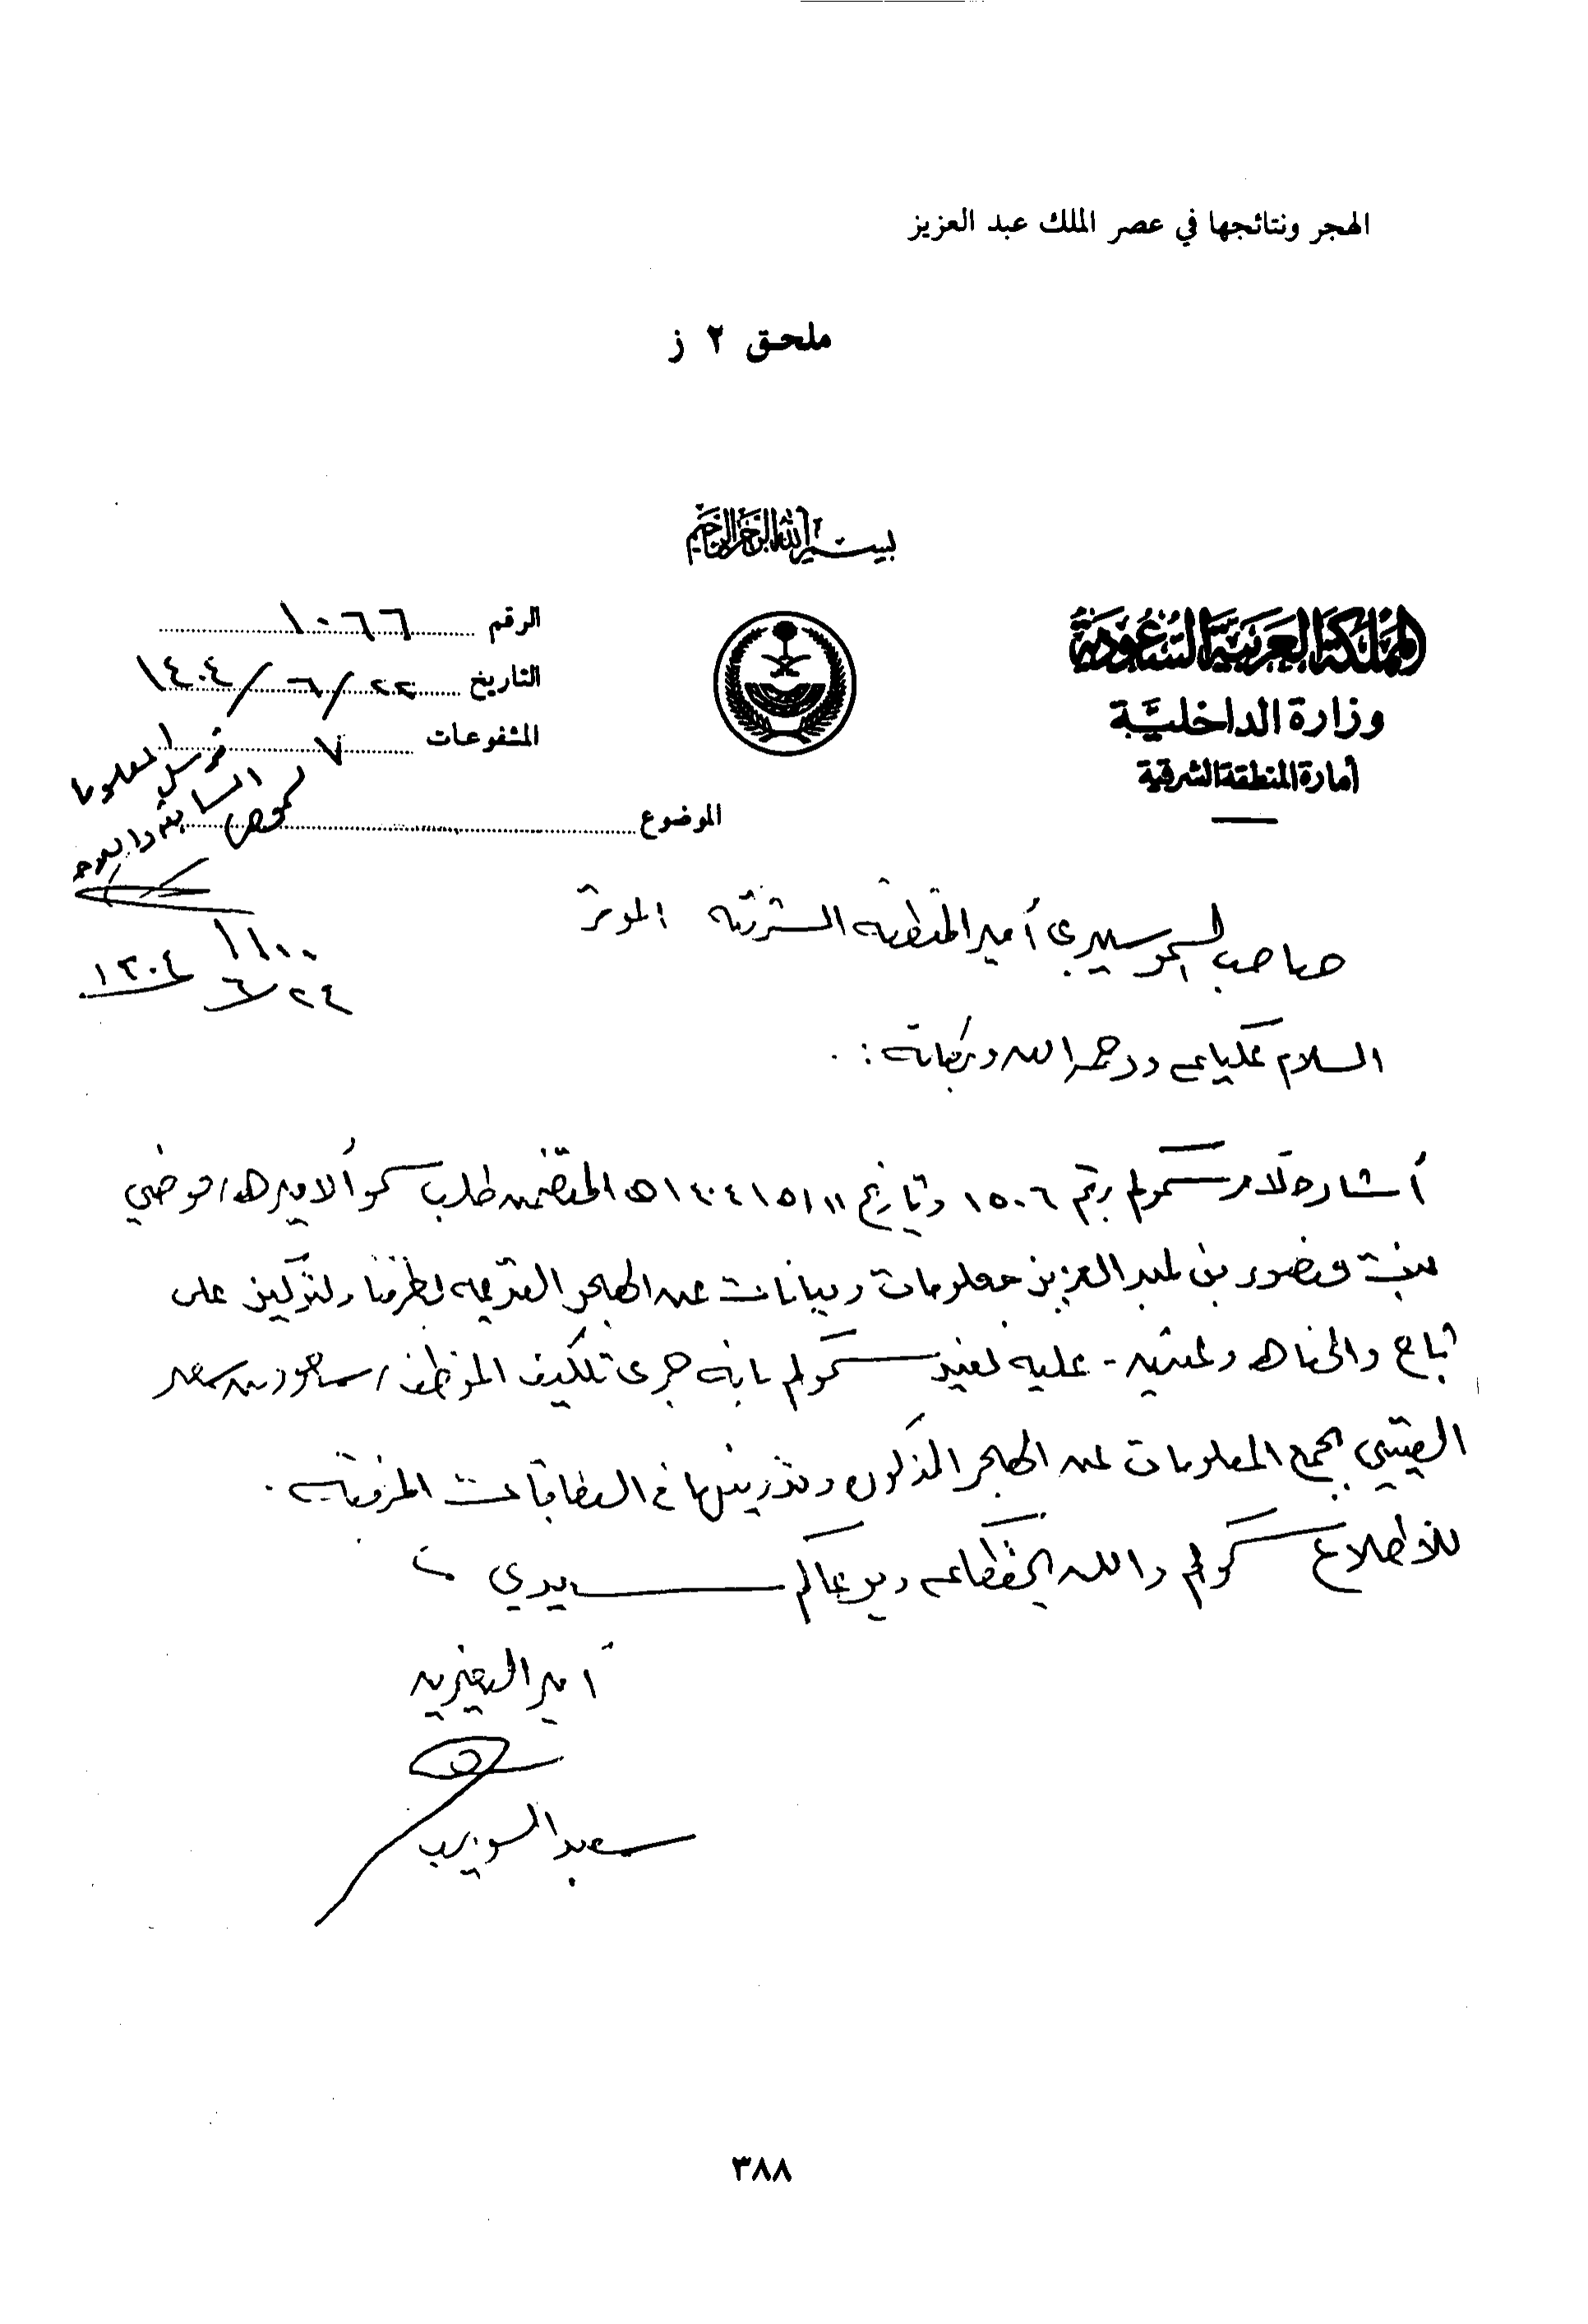 الهجر ونتائجها في عصر الملك عبد العزيز
ملحق ٢ ز
بسم الله الرحمن الرحيم
المملكة العربية السعودية
وزارة الداخلية
أمارة المنطقة الشرقية
الرقم ١٠٦٦
التاريخ ٢٢/٦/١٤٠٤
المشفوعات ٧
الموضوع
صاحب السمو سيدي أمير المنطقة الشرقية الموقر
السلام عليكم ورحمة الله وبركاته :.
أشاره لأمر سموكم رقم ١٥٠٦ وتاريخ ١٤٠٤/٥/١١ه المتضمن طلب سمو ألاميره/ موضي
بنت منصور بن عبد العزيز معلومات وبيانات عن الهجر القديمه بطرفنا والتركيز على
ثاج والحناه وعتيق - عليه نفيد سموكم بانه جرى تكليف الموظف/ سعود بن سعد
العتيبي بجمع المعلومات عن الهجر المذكوره وتدوينها في البطاقات المرفقه .
للاطلاع سموكم والله يحفظكم ويرعاكم سيدي
أمير النعيريه
سعد السويرب
٢٤/٦
٣٨٨